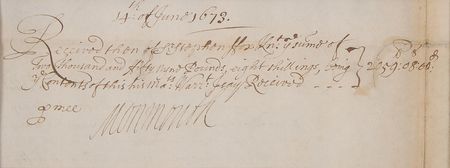 14th of June 1673.
Received then of Sr Stephen Fox Knt ye sume of
two thousand and fifty nine Pounds, eight shillings, being
ye Contents of this his Mats Warrt I say Received
2059:08:00
p mee
Monmouth